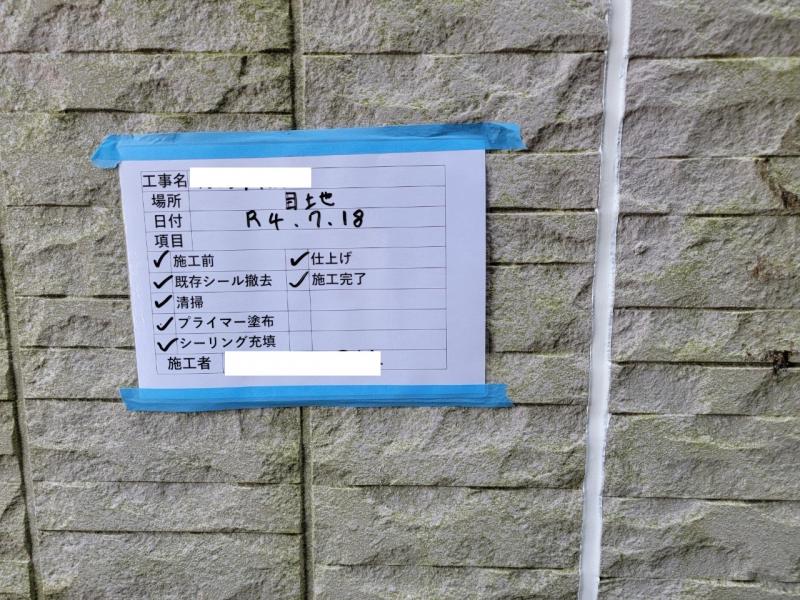 工事名
場所 目地
日付 R4.7.18
項目
✓施工前 ✓仕上げ
✓既存シール撤去 ✓施工完了
✓清掃
✓プライマー塗布
✓シーリング充填
施工者